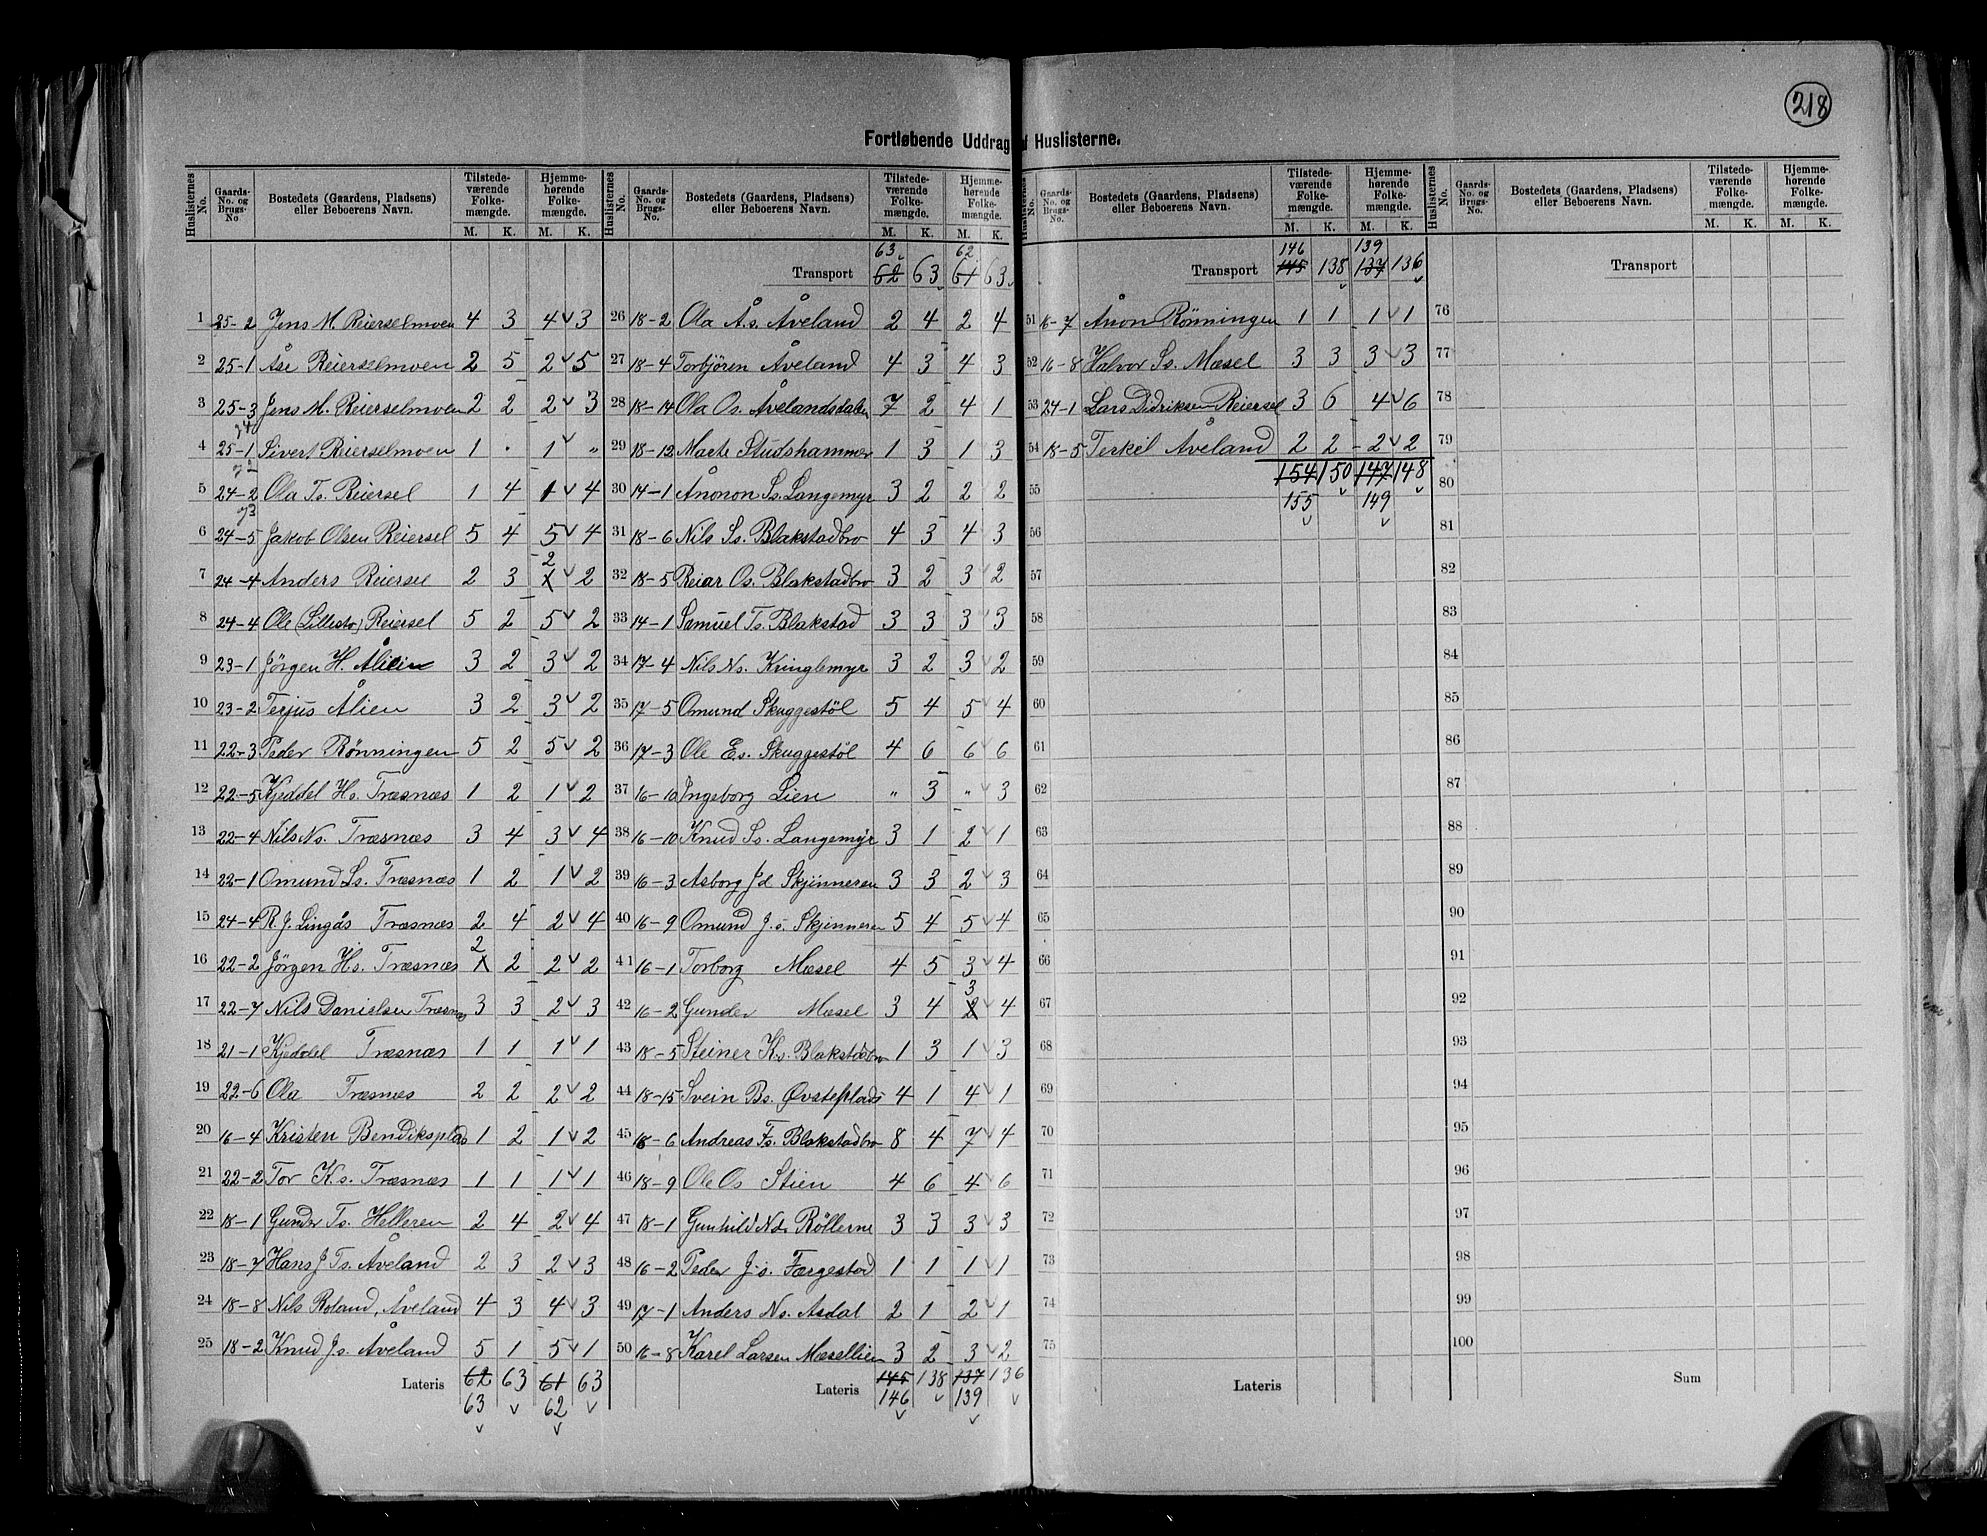 218
Fortløbende Uddrag af Huslisterne.
Huslisternes No. Gaards-No. og Brugs-No. Bostedets (Gaardens, Pladsens) eller Beboerens Navn. Tilstedeværende Folkemængde. M. K. Hjemmehørende Folkemængde. M. K.
1 25-2 Jens M. Reierselmoen 4 3 4 3
2 25-1 Åse Reierselmoen 2 5 2 5
3 25-3 Jens M. Reierselmoen 2 2 2 3
4 25-1 Sivert Reierselmoen 1 . 1 "
5 24-2 Ola Ts. Reiersel 1 4 1 4
6 24-5 Jakob Olsen Reiersel 5 4 5 4
7 24-4 Anders Reiersel 2 3 2 2
8 24-4 Ole (Lillestv) Reiersel 5 2 5 2
9 23-1 Jörgen H. Ålien 3 2 3 2
10 23-2 Terjus Ålien 3 2 3 2
11 22-3 Peder Rönningen 5 2 5 2
12 22-5 Kjeddel Hs. Træsnæs 1 2 1 2
13 22-4 Nils Ns. Træsnæs 3 4 3 4
14 22-1 Omund Ls. Træsnæs 1 2 1 2
15 24-4 R. J. Lingås Træsnæs 2 4 2 4
16 22-2 Jörgen Hs. Træsnæs 2 2 2 2
17 22-7 Nils Danielsen Træsnæs 3 3 2 3
18 21-1 Kjeddel Træsnæs 1 1 1 1
19 22-6 Ola Træsnæs 2 2 2 2
20 16-4 Kristen Bendiksplads 1 2 1 2
21 22-2 Tor K.s. Træsnæs 1 1 1 1
22 18-1 Gunder Ts. Helleren 2 4 2 4
23 18-7 Hans J Ts. Åveland 2 3 2 3
24 18-8 Nils Roland, Åveland 4 3 4 3
25 18-2 Knud Js. Åveland 5 1 5 1
Lateris 62 63 61 63
63 62
63 62
Transport 62 63 61 63
26 18-2 Ola Ås. Åveland 2 4 2 4
27 18-4 Torbjören Åveland 4 3 4 3
28 18-14 Ola Os. Åvelandsdalen 7 2 4 1
29 18-12 Marte Studshammer 1 3 1 3
30 14-1 Ånonon Ss. Langemyr 3 2 2 2
31 18-6 Nils Ss. Blakstadbro 4 3 4 3
32 18-5 Reiar Os. Blakstadbro 3 2 3 2
33 14-1 Samuel Ts. Blakstad 3 3 3 3
34 17-4 Nils Ns. Kringlemyr 3 2 3 2
35 17-5 Omund Skuggestöl 5 4 5 4
36 17-3 Ole Es. Skuggestöl 4 6 6 6
37 16-10 Ingeborg Lien " 3 " 3
38 16-10 Knud Ss. Langemyr 3 1 2 1
39 16-3 Asborg Jd. Skjinneren 3 3 2 3
40 16-9 Omund J.s. Skjinneren 5 4 5 4
41 16-1 Torborg Mæsel 4 5 3 4
42 16-2 Gunder Mæsel 3 4 3 4
43 18-5 Steiner K.s. Blakstadbro 1 3 1 3
44 18-15 Svein Bs. Øvsteplads 4 1 4 1
45 18-6 Andreas Fs. Blakstadbro 8 4 7 4
46 18-9 Ole Os Stien 4 6 4 6
47 18-1 Gunhild Nd. Röllerne 3 3 3 3
48 16-2 Peder J.s. Færgestad 1 1 1 1
49 17-1 Anders Ns. Asdal 2 1 2 1
50 16-8 Karel Larsen Mæsellien 3 2 3 2
Lateris 145 138 137 136
146 139
146 139
Transport 145 138 137 136
51 16-7 Ånon Rönningen 1 1 1 1
52 16-8 Halvor Ss. Mæsel 3 3 3 3
53 24-1 Lars Didriksen Reiersel 3 6 4 6
54 18-5 Terkel Åveland 2 2 2 2
154 150 147 148
155 149
55
56
57
58
59
60
61
62
63
64
65
66
67
68
69
70
71
72
73
74
75
Lateris
Transport
76
77
78
79
80
81
82
83
84
85
86
87
88
89
90
91
92
93
94
95
96
97
98
99
100
Sum